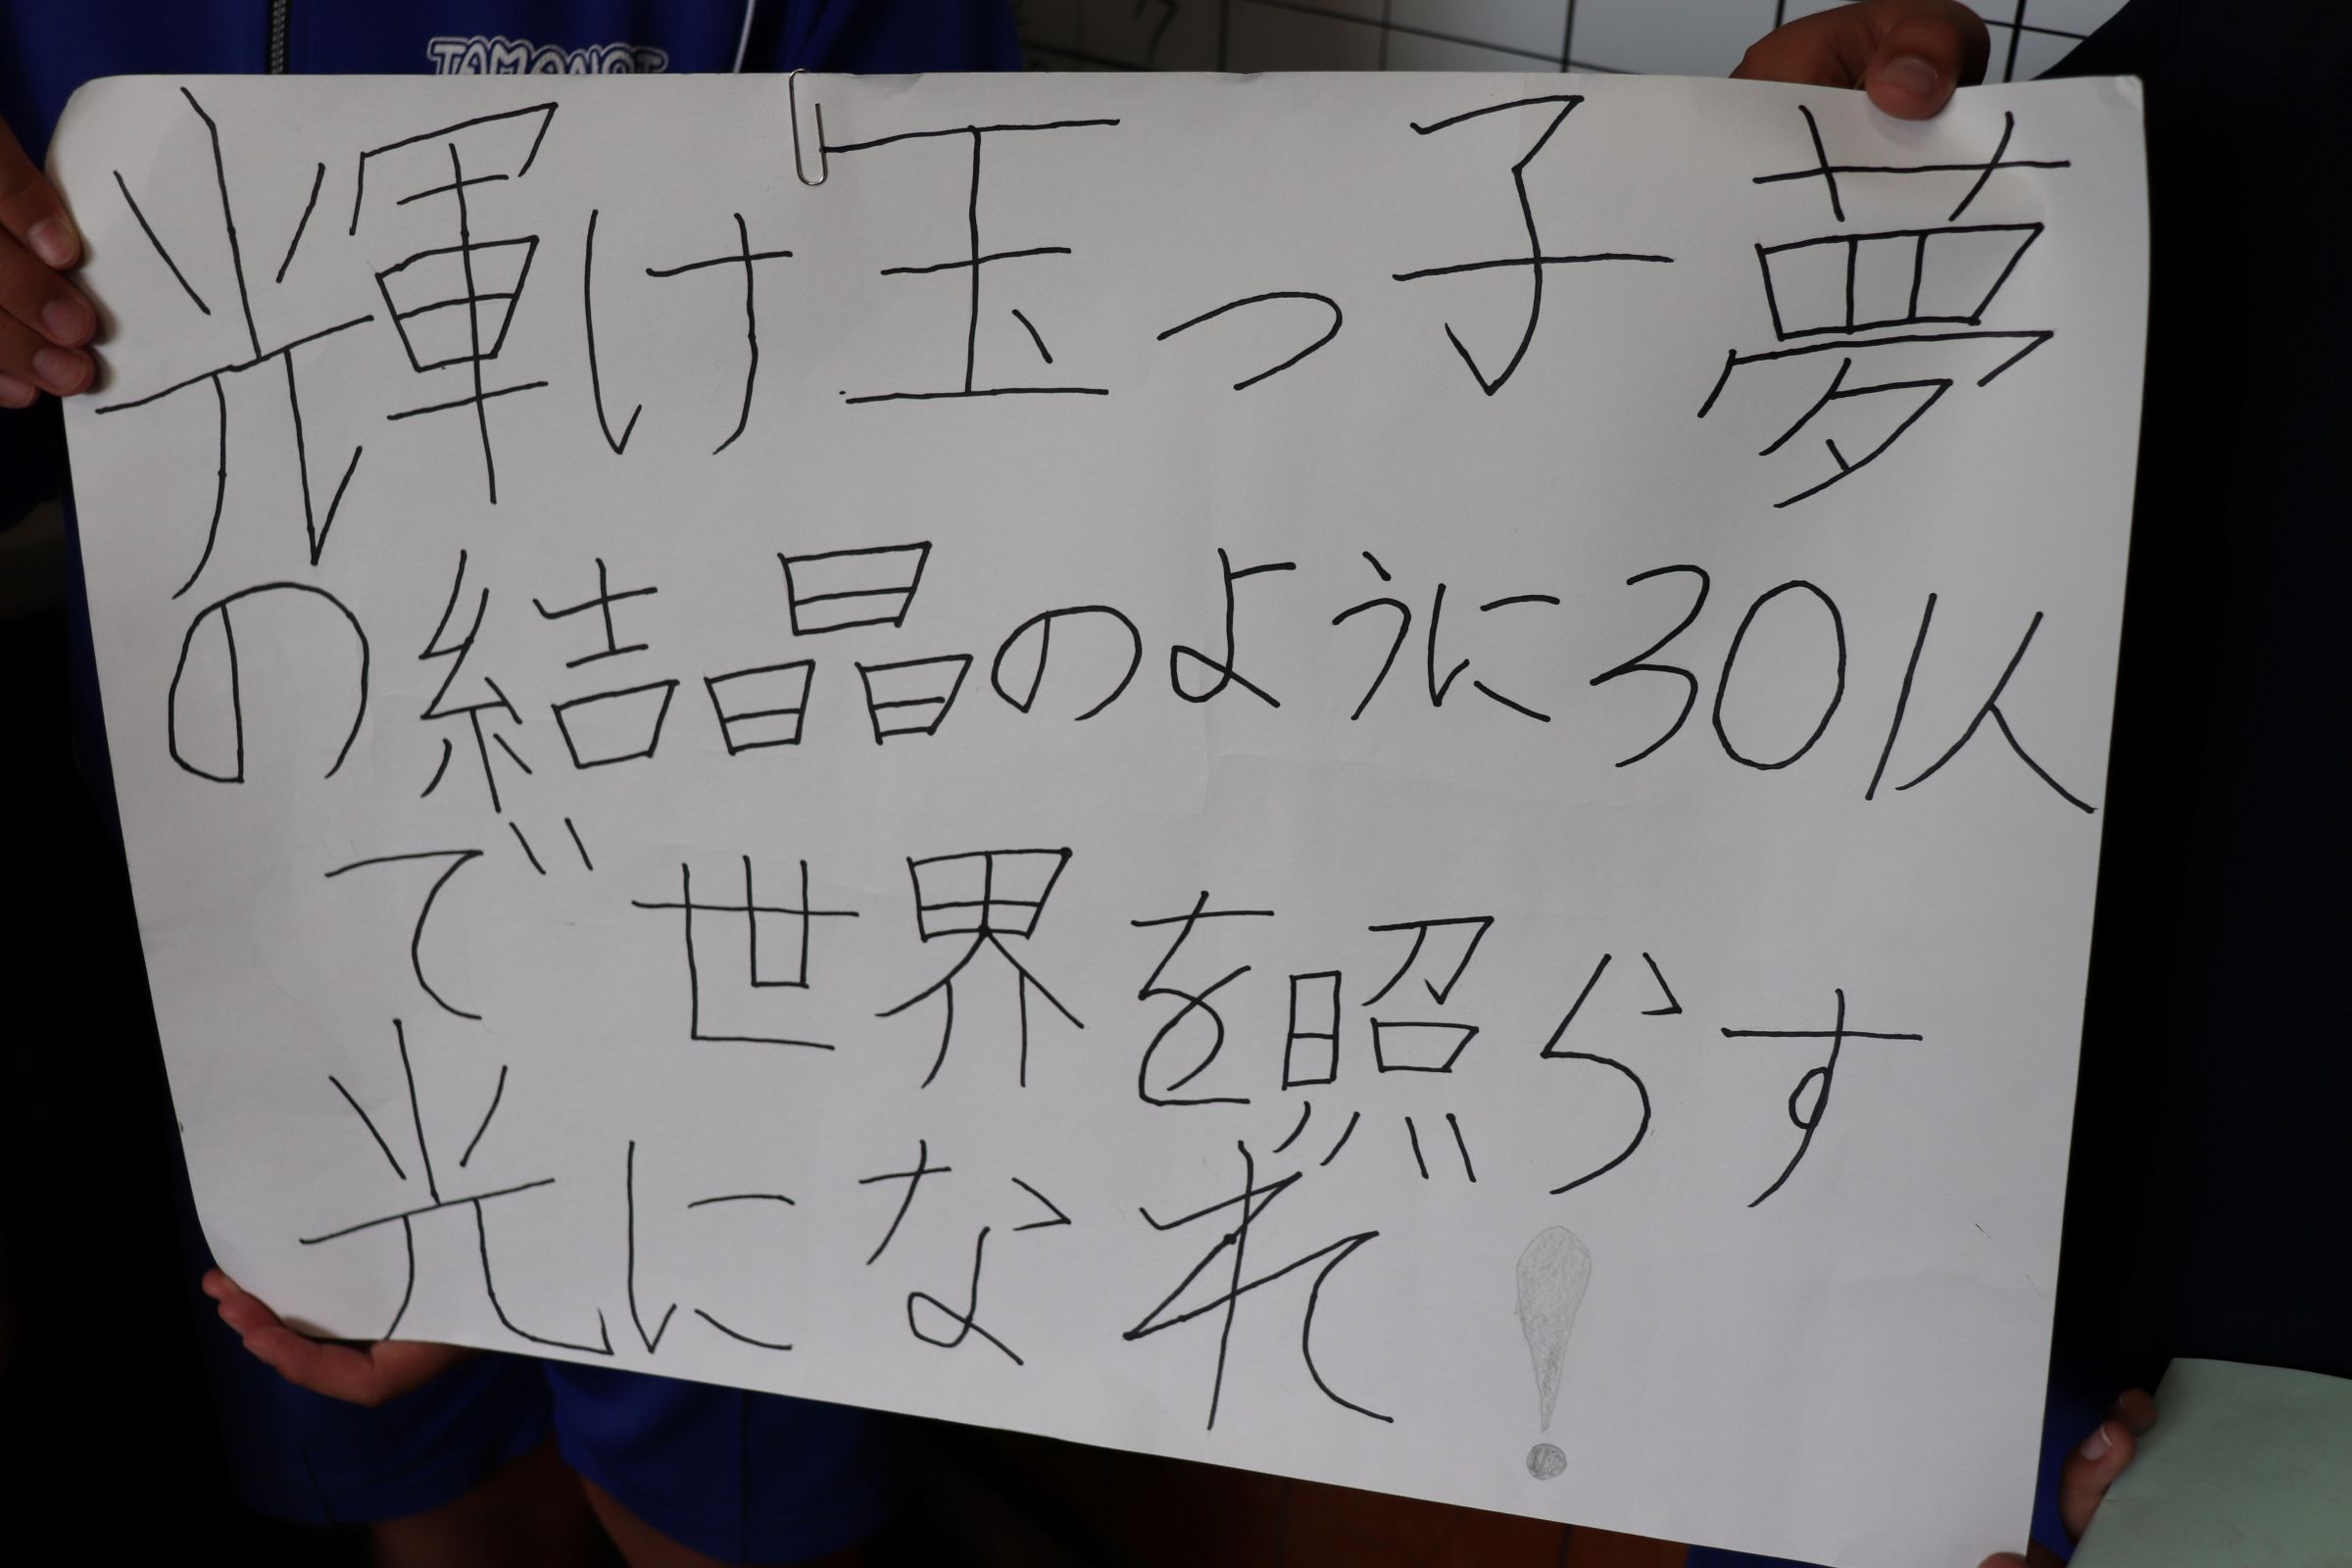 輝け玉っ子夢
の結晶のように301人
で世界を照らす
光になれ！